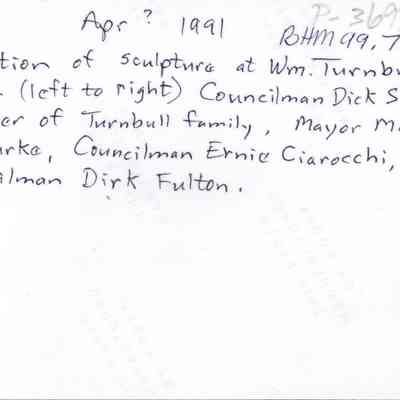 P-369
Apr ? 1991
BHM 99.7
tion of sculpture at Wm. Turnbu
. (left to right) Councilman Dick S
er of Turnbull family, Mayor M
urke, Councilman Ernie Ciarocchi,
ilman Dirk Fulton.